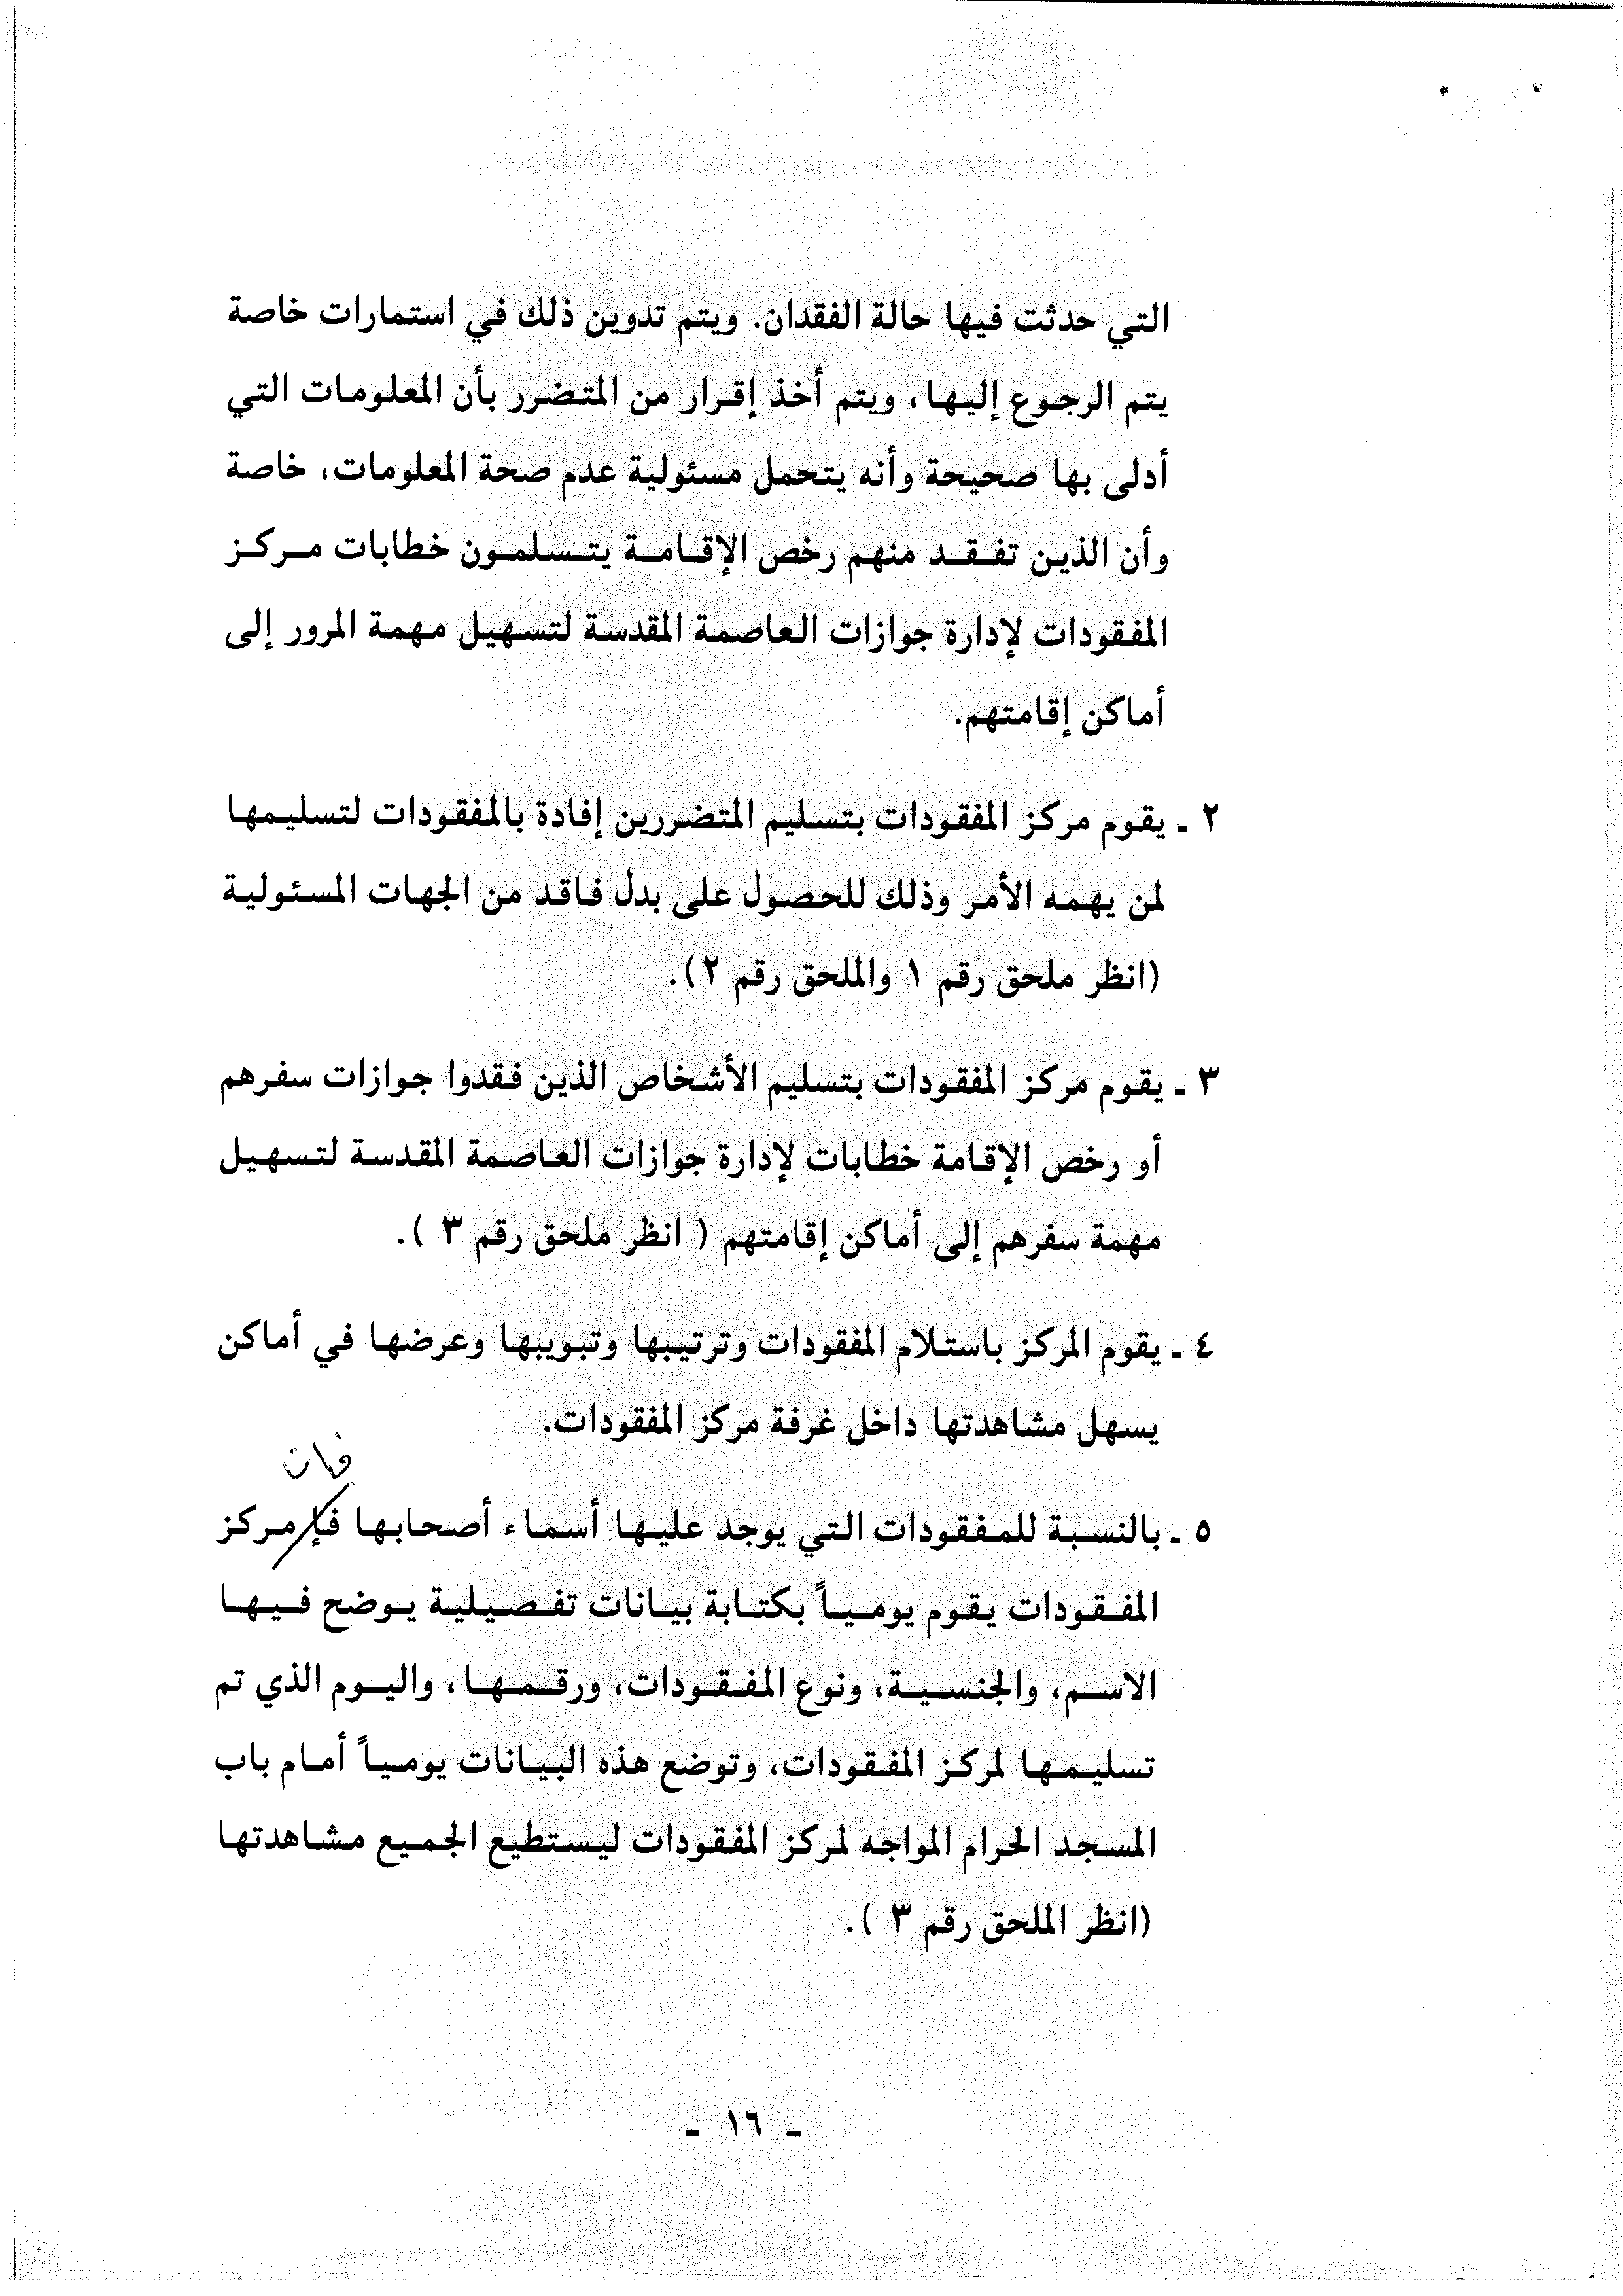 التي حدثت فيها حالة الفقدان. ويتم تدوين ذلك في استمارات خاصة
يتم الرجوع إليها، ويتم أخذ إقرار من المتضرر بأن المعلومات التي
أدلى بها صحيحة وأنه يتحمل مسئولية عدم صحة المعلومات، خاصة
وأن الذين تفقد منهم رخص الإقامة يتسلمون خطابات مركز
المفقودات لإدارة جوازات العاصمة المقدسة لتسهيل مهمة المرور إلى
أماكن إقامتهم.
٢ ـ يقوم مركز المفقودات بتسليم المتضررين إفادة بالمفقودات لتسليمها
لمن يهمه الأمر وذلك للحصول على بدل فاقد من الجهات المسئولية
(انظر ملحق رقم ١ والملحق رقم ٢).
٣ ـ يقوم مركز المفقودات بتسليم الأشخاص الذين فقدوا جوازات سفرهم
أو رخص الإقامة خطابات لإدارة جوازات العاصمة المقدسة لتسهيل
مهمة سفرهم إلى أماكن إقامتهم ( انظر ملحق رقم ٣ ).
٤ ـ يقوم المركز باستلام المفقودات وترتيبها وتبويبها وعرضها في أماكن
يسهل مشاهدتها داخل غرفة مركز المفقودات.
فإن
٥ ـ بالنسبة للمفقودات التي يوجد عليها أسماء أصحابها فإ مركز
المفقودات يقوم يومياً بكتابة بيانات تفصيلية يوضح فيها
الاسم، والجنسية، ونوع المفقودات، ورقمها، واليوم الذي تم
تسليمها لمركز المفقودات، وتوضع هذه البيانات يومياً أمام باب
المسجد الحرام المواجه لمركز المفقودات ليستطيع الجميع مشاهدتها
(انظر الملحق رقم ٣ ).
ـ ١٦ ـ